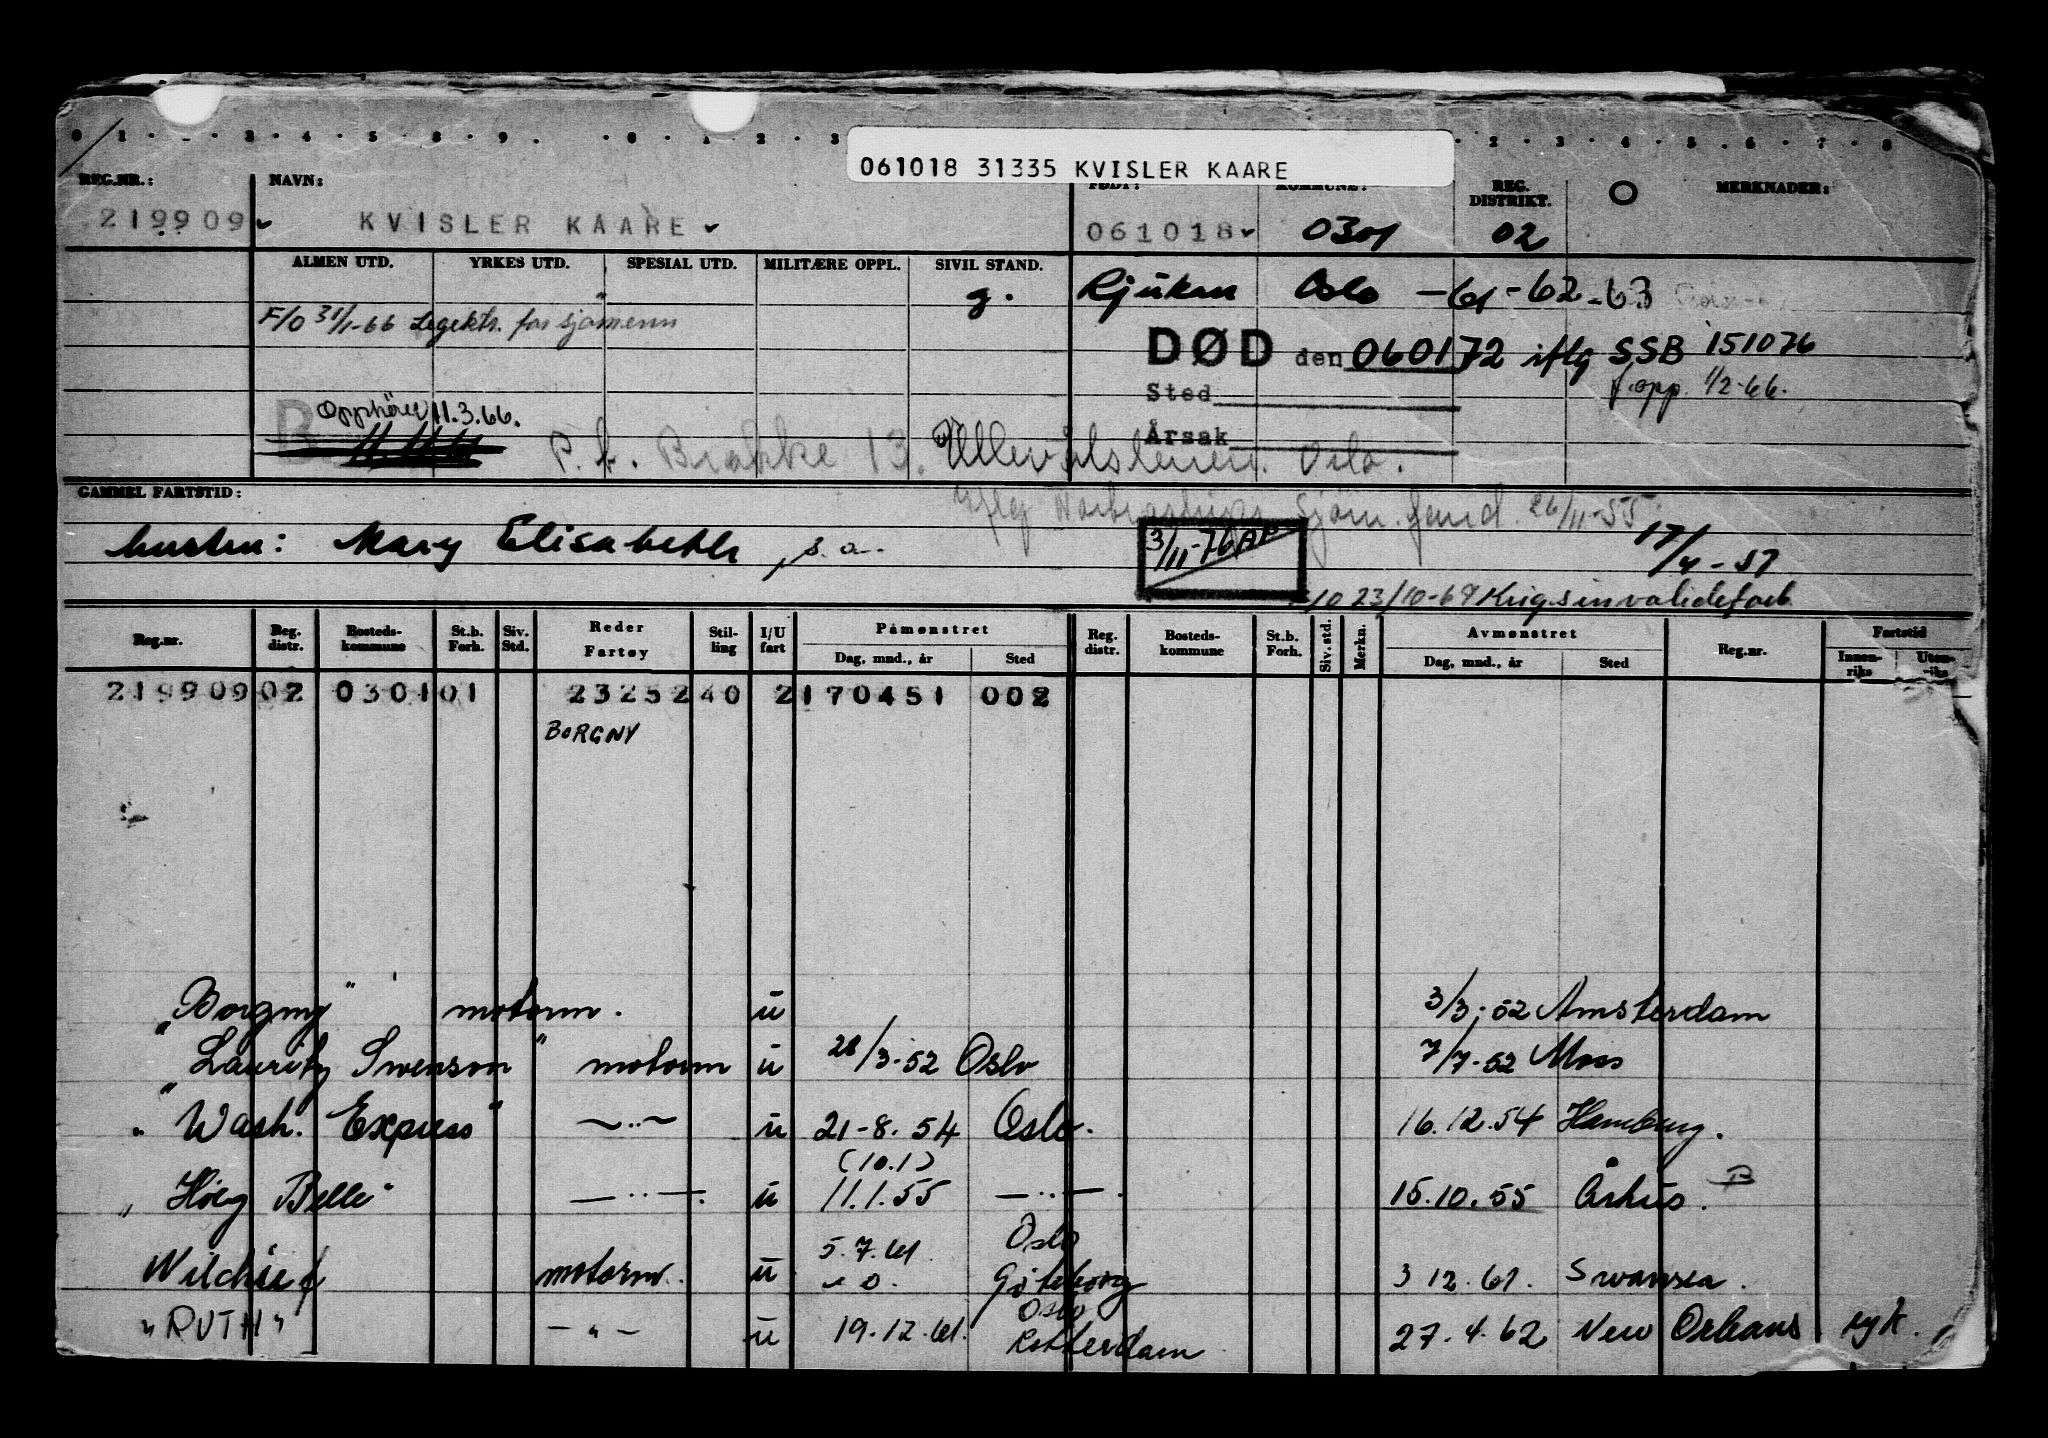 061018 31335 KVISLER KAARE
REG.NR.: NAVN: FØDT: KOMMUNE: REG. DISTRIKT. O MERKNADER:
219909 KVISLER KAARE 061018 0301 02
ALMEN UTD. YRKES UTD. SPESIAL UTD. MILITÆRE OPPL. SIVIL STAND.
g. Rjukan Oslo -61-62-63
F/O 31/1-66 Legektr. for sjømenn
DØD den 060172 iflg SSB 151076
Sted f.opp. 1/2-66.
Opphører 11.3.66.
Årsak
P.t. Brakke 13. Ullevålsleiren. Oslo.
GAMMEL FARTSTID:
Iflg Sjøm. 26/11-55
hustru: Mary Elisabeth, s.a. 3/11-76 17/4-57
F/O 23/10-69 Krigsinvalideforb
Reg.nr. Reg. distr. Bosteds- kommune St.b. Forh. Siv. Std. Reder Fartøy Stil- ling I/U fart Påmønstret Dag, mnd., år Sted Reg. distr. Bosteds- kommune St.b. Forh. Siv. std. Merkn. Avmønstret Dag, mnd., år Sted Reg.nr. Fartstid Innen- riks Uten- riks
219909 02 0301 01 2325240 2 170451 002
BORGNY
"Borgny" motorm. u 3/3-52 Amsterdam
"Lauritz Swenson" motorm u 28/3-52 Oslo 7/7-52 Moss
"Wash. Express" —..— u 21-8.54 Oslo. 16.12.54 Hamburg.
(10.1)
"Høeg Belle" —..—. u 11.1.55 —..—. 15.10.55 Århus. B
5.7.61 Oslo
Wilchief motorm. u - o. Göteborg 3 12.61. Swansea.
"RUTH" —"— u 19.12.61. Oslo
Rotterdam 27.4.62 New Orleans syk.